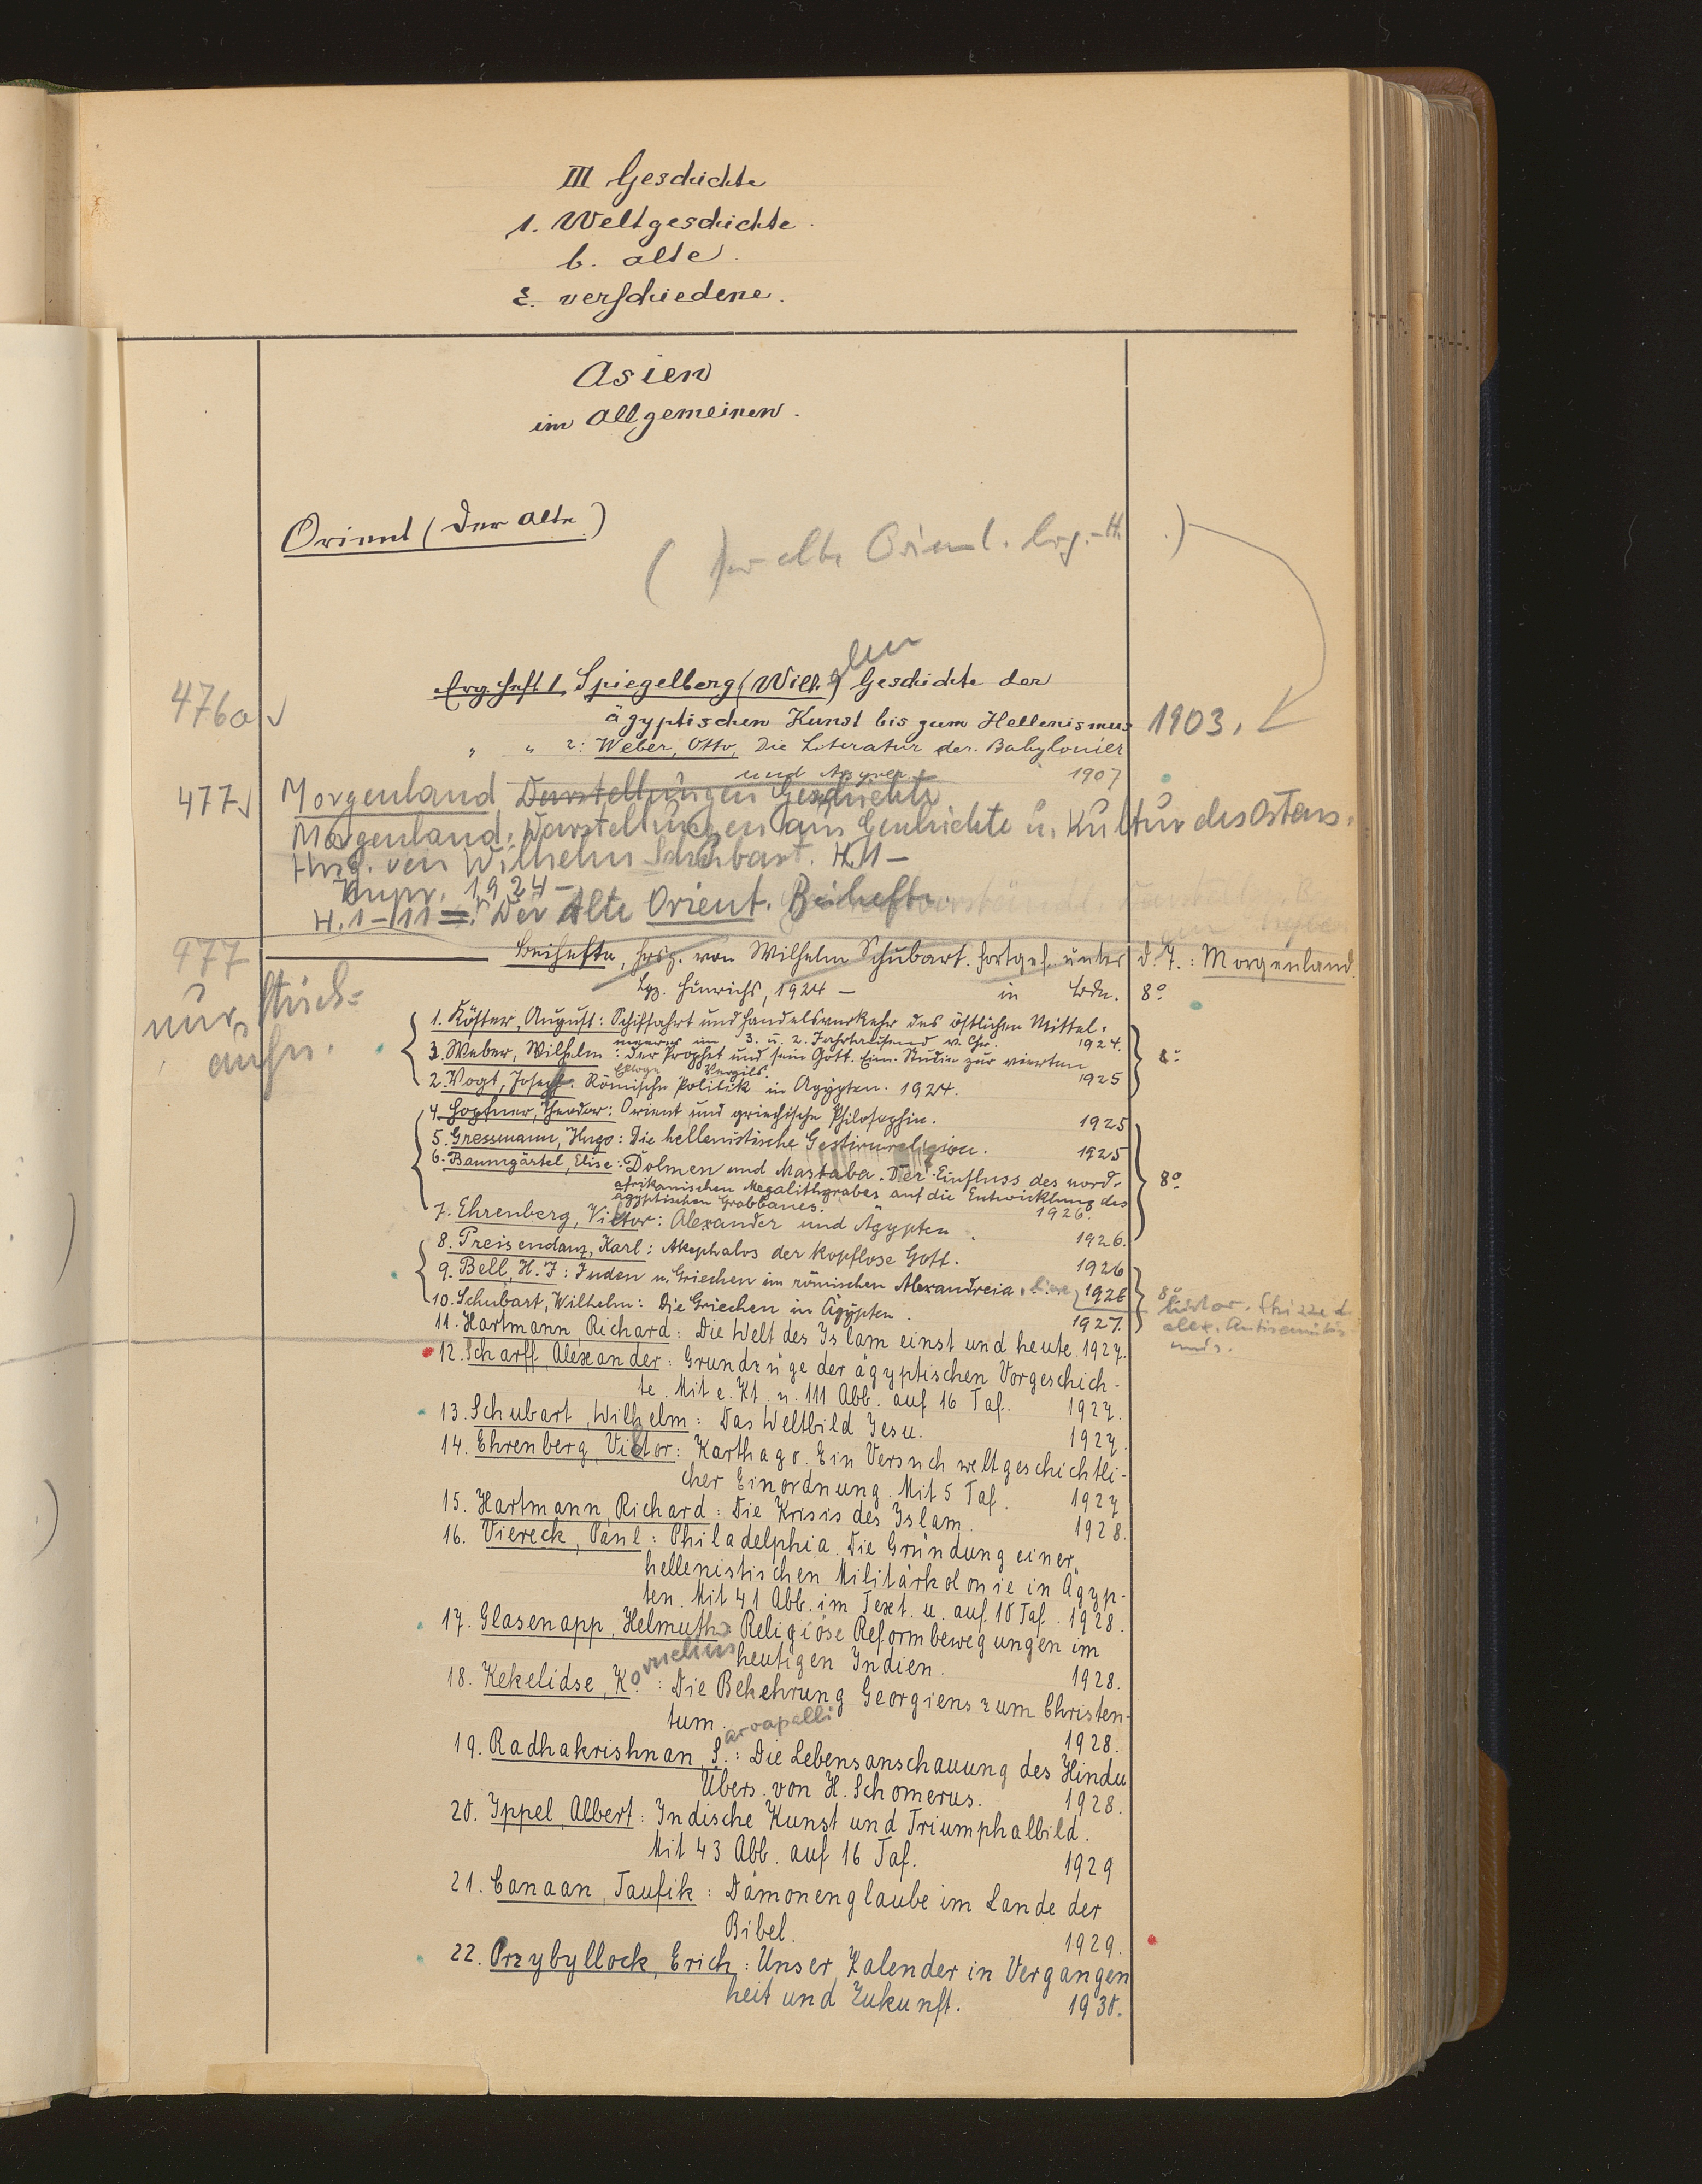 III Geschichte
1. Weltgeschichte.
b. alte
ε. verschiedene.
Asien
im Allgemeinen.
Orient (Der alte)
( Der alte Orient. Erg.-H. .)
Erg. Heft 1 Spiegelberg (Wilh.) Geschichte der
476a √ ägyptischen Kunst bis zum Hellenismus 1903.
" " 2: Weber, Otto, Die Literatur der Babylonier
und Assyrer 1907
477 √ Morgenland Darstellungen Geschichte
Morgenland. Darstellungen aus Geschichte u. Kultur des Ostens.
Hrsg. von Wilhelm Schubart. H. 1 –
1924 –
H. 1–11 =: Der Alte Orient. Beihefte.
477 Beihefte, hrsg. von Wilhelm Schubart. fortges. unter d. T.: Morgenland.
nur Lpz. Hinrichs, 1924 – in Bdn. 8°
1. Köster, August: Schiffahrt und Handelsverkehr des östlichen Mittel-
meeres im 3. u. 2. Jahrtausend v. Chr. 1924.
3. Weber, Wilhelm: Der Prophet und sein Gott. Eine Studie zur vierten 8°
Ekloge Vergils. 1925
2. Vogt, Joseph: Römische Politik in Ägypten. 1924.
4. Hopfner, Theodor: Orient und griechische Philosophie. 1925
5. Gressmann, Hugo: Die hellenistische Gestirnreligion. 1925
6. Baumgärtel, Elise: Dolmen und Mastaba. Der Einfluss des nord- 8°
afrikanischen Megalithgrabes auf die Entwicklung des
ägyptischen Grabbaues. 1926.
7. Ehrenberg, Viktor: Alexander und Ägypten. 1926.
8. Preisendanz, Karl: Akephalos der kopflose Gott. 1926
9. Bell, H. I: Juden u. Griechen im römischen Alexandreia. Eine 1926 8°
histor. Skizze d.
alex. Antisemitis-
mus.
10. Schubart, Wilhelm: Die Griechen in Ägypten. 1927.
11. Hartmann, Richard: Die Welt des Islam einst und heute. 1927.
12. Scharff, Alexander: Grundzüge der ägyptischen Vorgeschich-
te. Mit e. Kt. u. 111 Abb. auf 16 Taf. 1927.
13. Schubart, Wilhelm: Das Weltbild Jesu. 1927.
14. Ehrenberg, Viktor: Karthago. Ein Versuch weltgeschichtli-
cher Einordnung. Mit 5 Taf. 1927
15. Hartmann, Richard: Die Krisis des Islam. 1928.
16. Viereck, Paul: Philadelphia. Die Gründung einer
hellenistischen Militärkolonie in Ägyp-
ten. Mit 41 Abb. im Text. u. auf 10 Taf. 1928.
17. Glasenapp, Helmuth: Religiöse Reformbewegungen im
heutigen Indien. 1928.
18. Kekelidse, Kornelius: Die Bekehrung Georgiens zum Christen-
tum. 1928.
19. Radhakrishnan, Sarvapalli: Die Lebensanschauung des Hindu
Übers. von H. Schomerus. 1928.
20. Ippel, Albert: Indische Kunst und Triumphalbild.
Mit 43 Abb. auf 16 Taf. 1929
21. Canaan, Taufik: Dämonenglaube im Lande der
Bibel. 1929.
22. Przybyllock, Erich: Unser Kalender in Vergangen
heit und Zukunft. 1930.